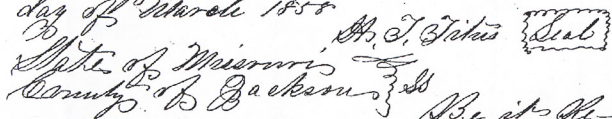 day of March 1858
H. T. Titus Seal
State of Missouri
County of Jackson } SS
Be it Re-